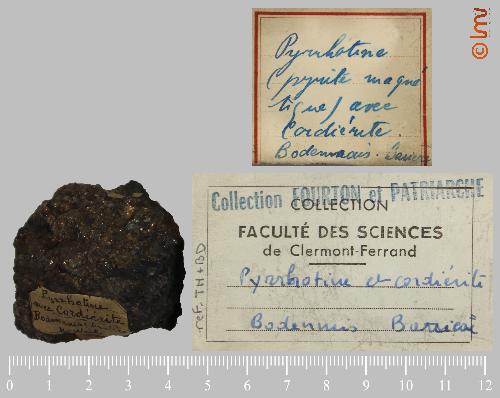 © lmv
Pyrrhotine
(pyrite magné
tique) avec
Cordiérite.
Bodenmais.
Collection FOURTON et PATRIARCHE
COLLECTION
FACULTÉ DES SCIENCES
de Clermont-Ferrand
Pyrrhotine et cordiérite
Bodenmais
ref. TH+BD
Pyrrhotine
avec Cordiérite
Bodenmais
0 1 2 3 4 5 6 7 8 9 10 11 12